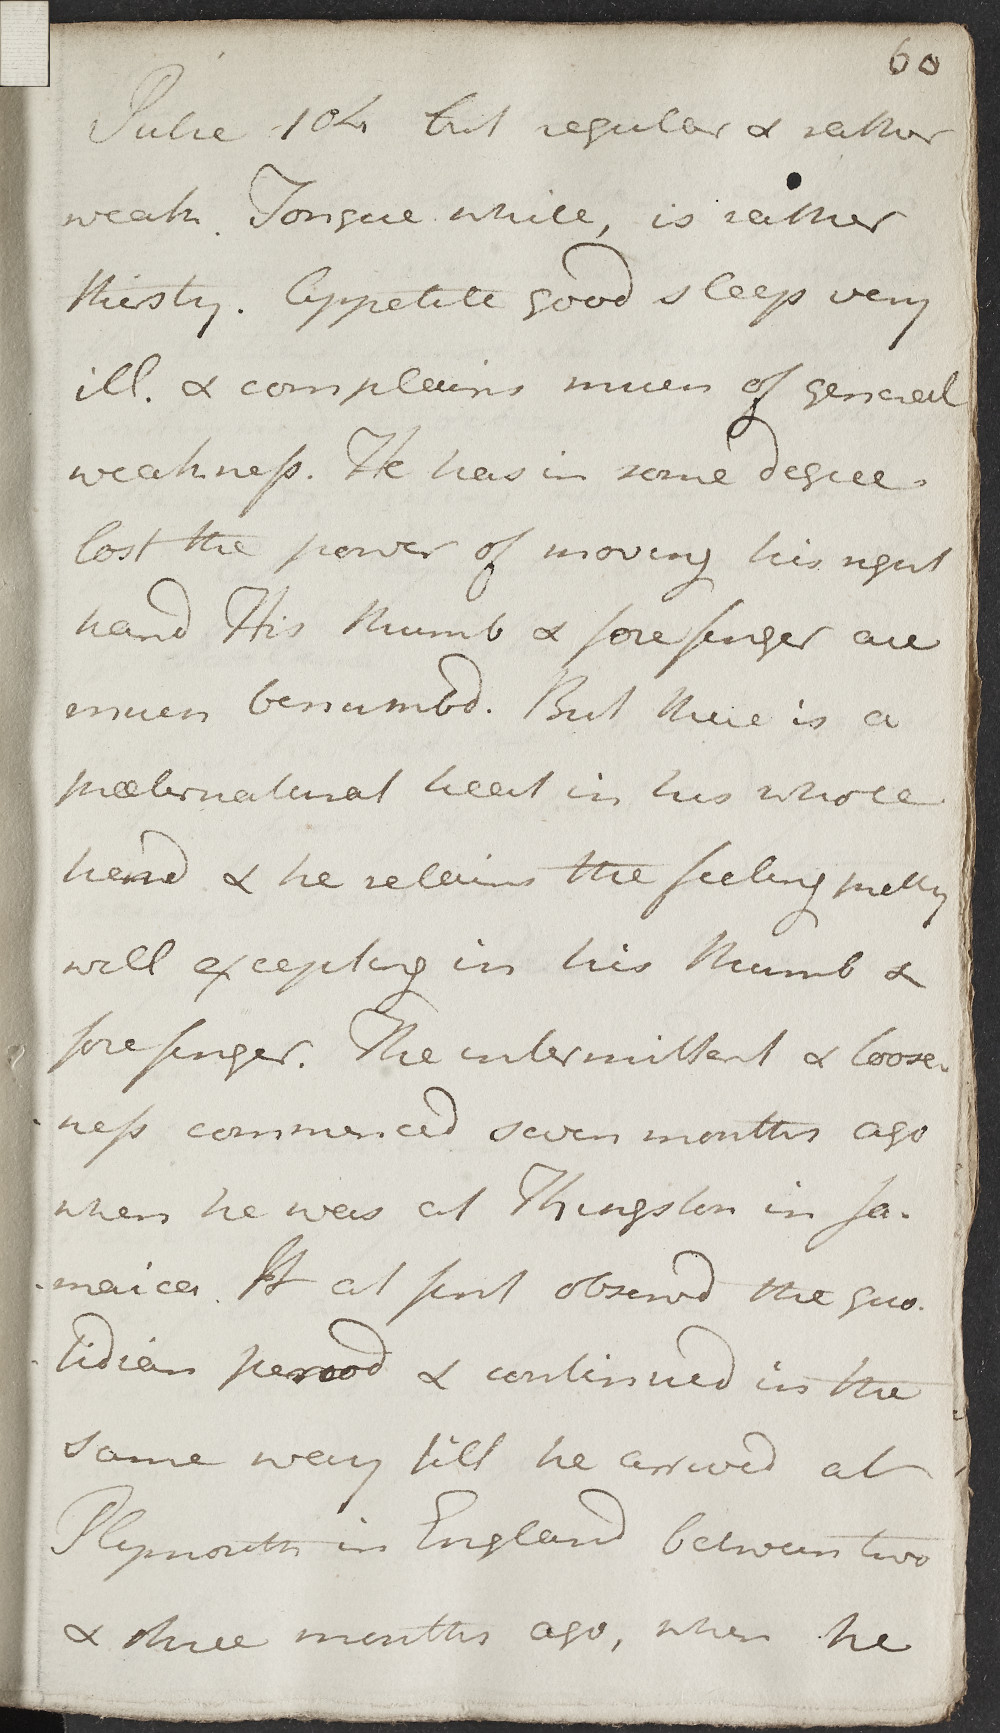 60
Pulse 104 but regular & rather
weak. Tongue white, is rather
thirsty. Appetite good sleeps very
ill. & complains much of general
weakness. He has in some degree
lost the power of moving his right
hand His thumb & forefinger are
much benumbd. But there is a
præternatural heat in his whole
hand & he retains the feeling pretty
well excepting in his thumb &
forefinger. The intermittent & loose-
ness commenced seven months ago
when he was at Kingston in Ja-
maica. It at first observd the quo-
tidian period & continued in the
same way till he arrived at
Plymouth in England between two
& three months ago, when he